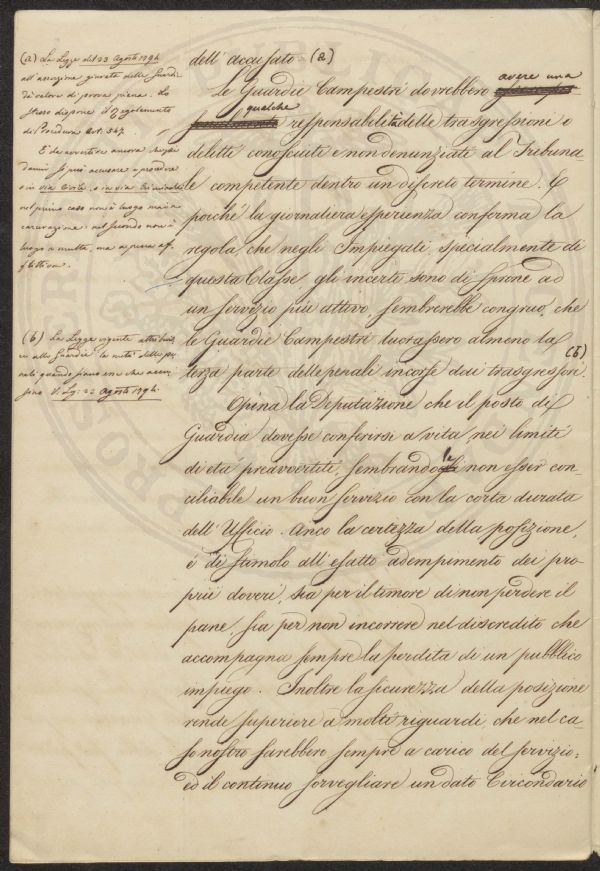 dell' accusato (a)
Le Guardie Campestri dovrebbero avere una
qualche responsabilità delle trasgressioni o
delitti conosciuti e non denunziati al Tribuna-
le competente dentro un discreto termine. E
poiché la giornaliera esperienza conferma la
regola che negli Impiegati, specialmente di
questa Classe, gli incerti sono di sprone ad
un servizio più attivo, sembrerebbe congruo, che
le Guardie Campestri lucrassero almeno la
terza parte delle penali incorse dai trasgressori. (b)
Opina la Deputazione che il posto di
Guardia dovesse conferirsi a vita nei limiti
di età preavvertiti, sembrandole non esser con-
ciliabile un buon servizio con la corta durata
dell' Ufficio. Anco la certezza della posizione,
è di stimolo all' esatto adempimento dei pro-
prii doveri, sia per il timore di non perdere il
pane, sia per non incorrere nel discredito che
accompagna sempre la perdita di un pubblico
impiego. Inoltre la sicurezza della posizione
rende superiore a molti riguardi, che nel ca-
so nostro sarebbero sempre a carico del servizio:
ed il continuo sorvegliare un dato Circondario
(a) La Legge del 23 Agosto 1794
all' assertiva giurata delle Guardie
dà valore di prova piena. Lo
stesso dispone il Regolamento
di Procedura Art. 547.
È da avvertire ancora che pei
danni si può accusare e procedere
o in via Civile, o in via Criminale
nel primo caso non è luogo mai a
carcerazione: nel secondo non è
luogo a multa, ma a pena af-
flittiva.
(b) La Legge vigente attribui-
va alle Guardie la metà delle pe-
nali quando siano
V. Lg: 23 Agosto 1794.